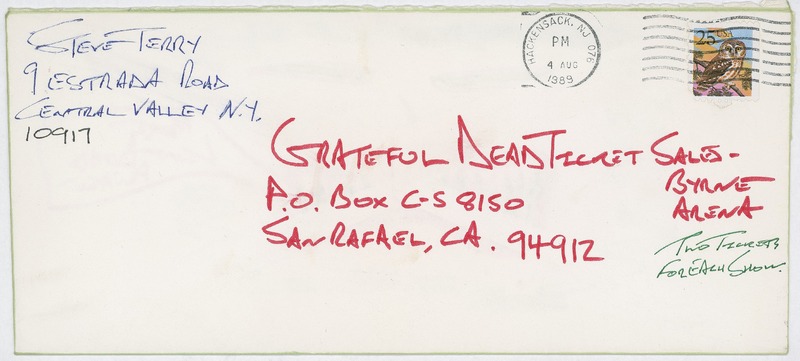 Steve Terry
9 Estrada Road
Central Valley N.Y.
10917
HACKENSACK, NJ 076
PM
4 AUG
1989
25 USA
Grateful Dead Ticket Sales-
Byrne
Arena
P.O. Box C-S 8150
San Rafael, CA. 94912
Two Tickets
For Each Show.